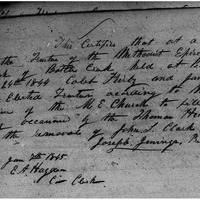 This Certifies that at a
the Trustees of the Methodist Episc
of Battle Creek held at B
24th 1844 Caleb Kirby and
Elected Trustees according to
of the M.E. Church to fill
occasioned by the Thomas H
the removals of John L. Clark
Joseph Jennings, P
Jan 7th 1845
E. A. Hayden
Co Clerk